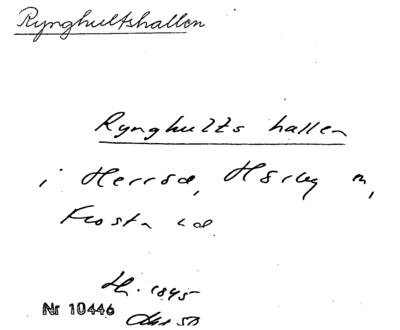 Rynghultshallen
Rynghults hallen
i Herrsa, Hörby m,
Frosta hd
Nr 10446